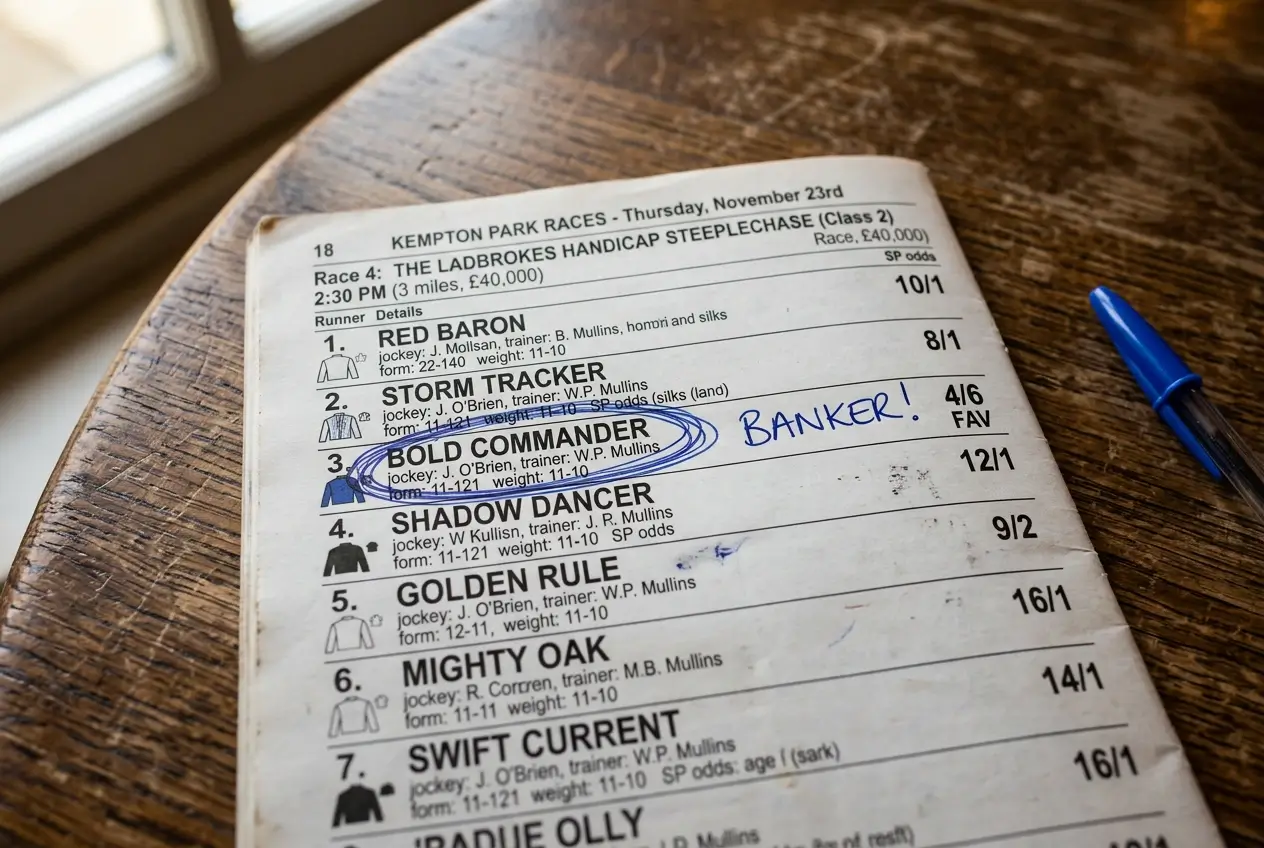 18 KEMPTON PARK RACES - Thursday, November 23rd
Race 4: THE LADBROKES HANDICAP STEEPLECHASE (Class 2)
2:30 PM (3 miles, £40,000) Race, £40,000)
Runner Details SP odds
1. RED BARON 10/1
jockey: J. Mollsan, trainer: B. Mullins, and silks
form: 22-140 weight: 11-10
2. STORM TRACKER 8/1
jockey: J. O'Brien, trainer: W.P. Mullins
form: 11-121 weight: 11-10 SP odds (silks (land)
3. BOLD COMMANDER BANKER! 4/6
FAV
jockey: J. O'Brien, trainer: W.P. Mullins
form: 11-121 weight: 11-10
4. SHADOW DANCER 12/1
jockey: W Kullisn, trainer: J. R. Mullins
form: 11-121 weight: 11-10 SP odds
5. GOLDEN RULE 9/2
jockey: J. O'Brien, trainer: W.P. Mullins
form: 12-11, weight: 11-10
6. MIGHTY OAK 16/1
jockey: R. Corrren, trainer: M.B. Mullins
form: 11-11 weight: 11-10
7. SWIFT CURRENT 14/1
jockey: J. O'Brien, trainer: W.P. Mullins
form: 11-121 weight: 11-10 SP odds: age (sark)
OLLY 16/1
Mullins